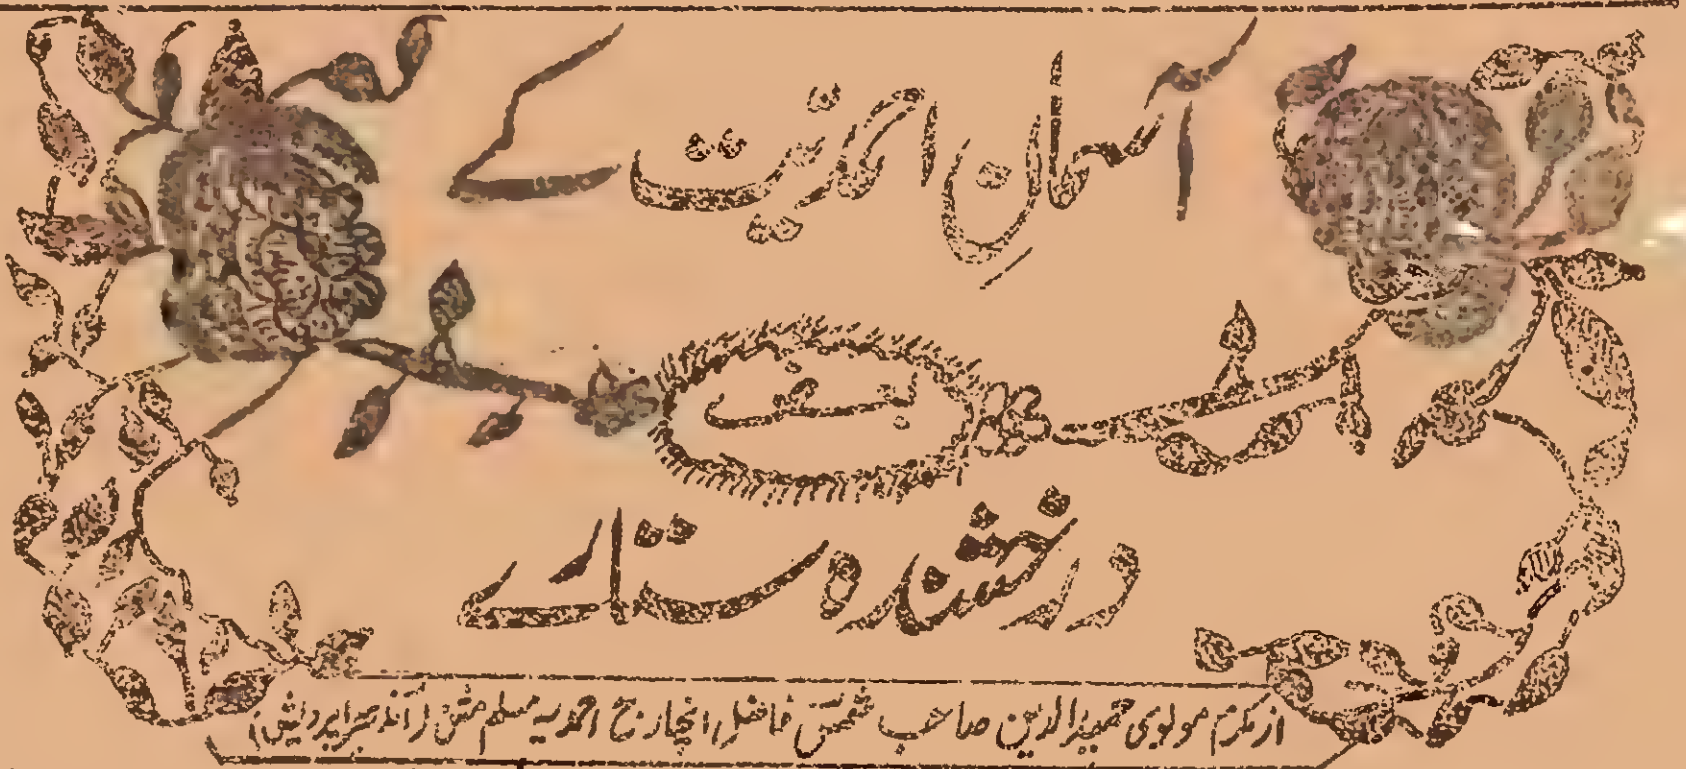 آسمانِ احمدیّت کے
بہت
درخشندہ ستارے
از مکرم مولوی حمید الدین صاحب شمس فاضل انچارج احمدیہ مسلم مشن (آندھرا پردیش)